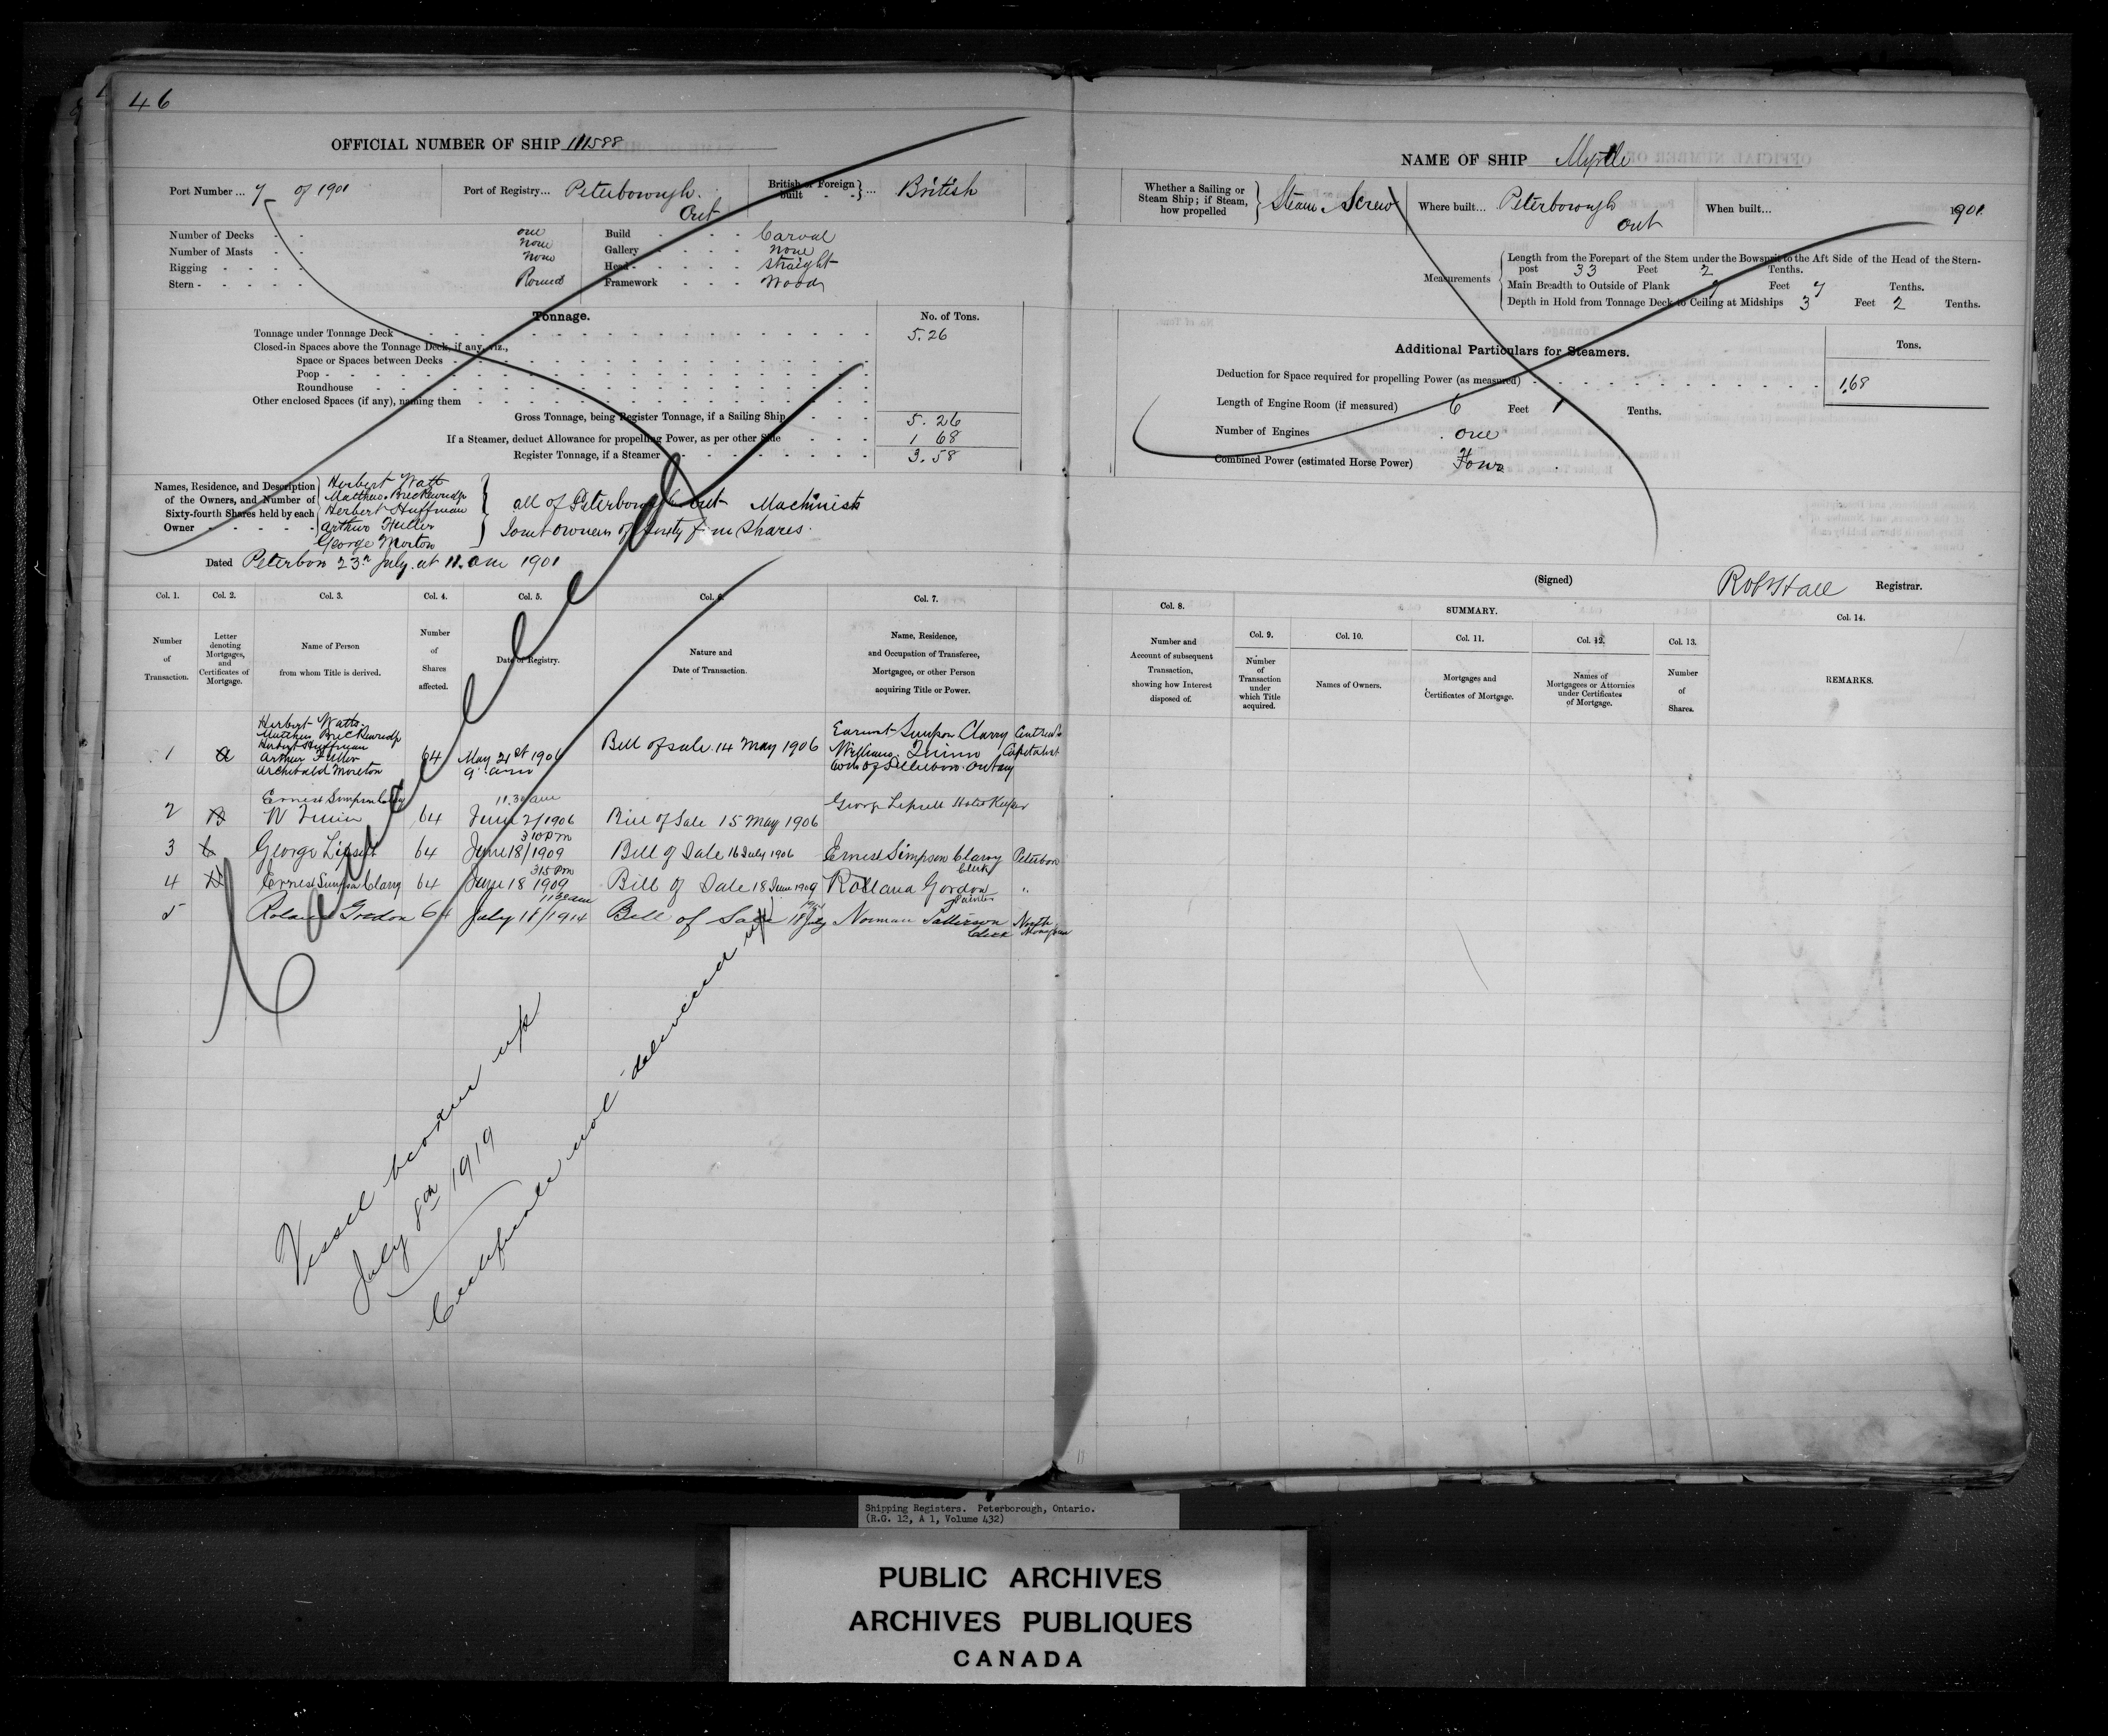 46
OFFICIAL NUMBER OF SHIP 111588
Port Number ... 7 of 1901
Port of Registry... Peterborough. Ont
British or Foreign built } ... British
Number of Decks - - one
Number of Masts - - none
Rigging - - - - none
Stern - - - - - Round
Build - - - - Carval
Gallery - - - - none
Head - - - - - straight
Framework - - - Wood
Tonnage.
No. of Tons.
Tonnage under Tonnage Deck 5.26
Closed-in Spaces above the Tonnage Deck, if any, viz.,
Space or Spaces between Decks
Poop
Roundhouse
Other enclosed Spaces (if any), naming them
Gross Tonnage, being Register Tonnage, if a Sailing Ship 5.26
If a Steamer, deduct Allowance for propelling Power, as per other Side 1 68
Register Tonnage, if a Steamer 3.58
Names, Residence, and Description of the Owners, and Number of Sixty-fourth Shares held by each Owner
Herbert Watt
Matthew Breckenridge
Herbert Huffman
Arthur Fuller
George Morton
all of Peterborough Ont Machinists
Joint Owners of Sixty four Shares.
Dated Peterboro 23rd July at 11. am 1901
Col. 1. Number of Transaction.
Col. 2. Letter denoting Mortgages, and Certificates of Mortgage.
Col. 3. Name of Person from whom Title is derived.
Col. 4. Number of Shares affected.
Col. 5. Date of Registry.
Col. 6. Nature and Date of Transaction.
Col. 7. Name, Residence, and Occupation of Transferee, Mortgagee, or other Person acquiring Title or Power.
1 A Herbert Watts. Matthew Breckenridge Herbert Huffman Arthur Fuller Archibald Moreton 64 May 21st 1906 9 am Bill of sale 14 May 1906 Earnest Simpson Clarry William Quinn Capitalist
2 B Ernest Simpson Clarry W Quinn 64 11.30 am June 2/1906 Bill of Sale 15 May 1906 George Lipsett Hotel Keeper
3 C George Lipsett 64 3 10 Pm June 18/1909 Bill of Sale 16 July 1906 Ernest Simpson Clarry Clerk Peterboro
4 D Ernest Simpson Clarry 64 3 15 Pm June 18 1909 Bill of Sale 18 June 1909 Rolland Gordon Painter "
5 Roland Gordon 64 11 30 am July 18/1914 Bill of Sale 18 July 1914 Norman Patterson Clerk North Monaghan
Cancelled
Vessel broken up
July 8th 1919
Certificate not delivered up
NAME OF SHIP Myrtle
Whether a Sailing or Steam Ship; if Steam, how propelled } Steam Screw
Where built... Peterborough Ont
When built... 1901
Measurements
Length from the Forepart of the Stem under the Bowsprit to the Aft Side of the Head of the Stern-post 33 Feet 2 Tenths.
Main Breadth to Outside of Plank 7 Feet 7 Tenths.
Depth in Hold from Tonnage Deck to Ceiling at Midships 3 Feet 2 Tenths.
Additional Particulars for Steamers.
Tons.
Deduction for Space required for propelling Power (as measured) 1.68
Length of Engine Room (if measured) 6 Feet 1 Tenths.
Number of Engines one
Combined Power (estimated Horse Power) Four
(Signed) Robt Hall Registrar.
Col. 8. Number and Account of subsequent Transaction, showing how Interest disposed of.
SUMMARY.
Col. 9. Number of Transaction under which Title acquired.
Col. 10. Names of Owners.
Col. 11. Mortgages and Certificates of Mortgage.
Col. 12. Names of Mortgagees or Attornies under Certificates of Mortgage.
Col. 13. Number of Shares.
Col. 14. REMARKS.
Shipping Registers. Peterborough, Ontario.
(R.G. 12, A 1, Volume 432)
PUBLIC ARCHIVES
ARCHIVES PUBLIQUES
CANADA